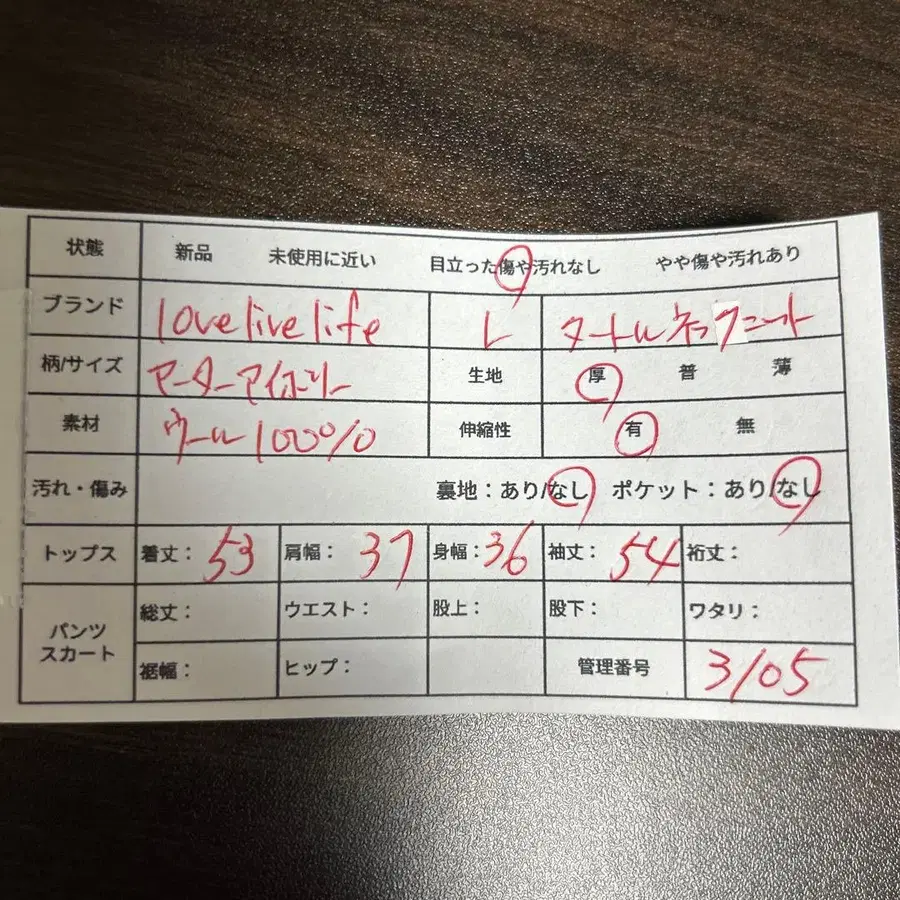 状態 新品 未使用に近い 目立った傷や汚れなし やや傷や汚れあり
ブランド lovelivelife L タートルネックニート
柄/サイズ マーターアイボリー 生地 厚 普 薄
素材 ウール100% 伸縮性 有 無
汚れ・傷み 裏地：あり/なし ポケット：あり/なし
トップス 着丈：53 肩幅：37 身幅：36 袖丈：54 裄丈：
パンツ スカート 総丈： ウエスト： 股上： 股下： ワタリ：
裾幅： ヒップ： 管理番号 3105